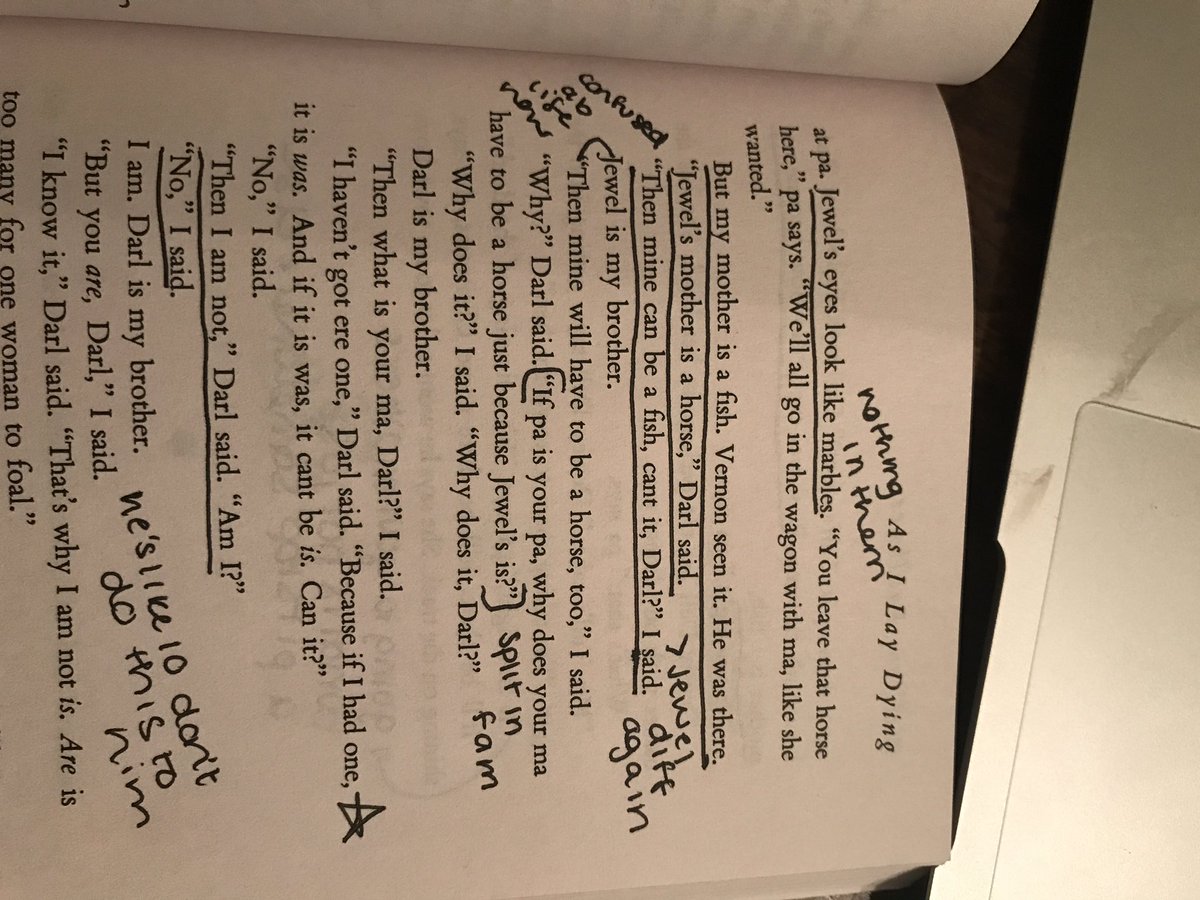 nothing
in them
As I Lay Dying
at pa. Jewel's eyes look like marbles. "You leave that horse
here," pa says. "We'll all go in the wagon with ma, like she
wanted."
But my mother is a fish. Vernon seen it. He was there.
"Jewel's mother is a horse," Darl said.
> Jewel
diff
again
"Then mine can be a fish, cant it, Darl?" I said.
Jewel is my brother.
confused
ab
life
now
"Then mine will have to be a horse, too," I said.
"Why?" Darl said. "If pa is your pa, why does your ma
have to be a horse just because Jewel's is?"
split in
fam
"Why does it?" I said. "Why does it, Darl?"
Darl is my brother.
"Then what is your ma, Darl?" I said.
"I haven't got ere one," Darl said. "Because if I had one,
it is was. And if it is was, it cant be is. Can it?"
"No," I said.
"Then I am not," Darl said. "Am I?"
"No," I said.
I am. Darl is my brother.
he's like 10 don't
do this to
him
"But you are, Darl," I said.
"I know it," Darl said. "That's why I am not is. Are is
too many for one woman to foal."